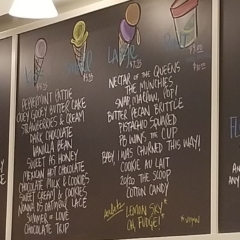 PEPPERMINT LATTE
OOEY GOOEY BUTTER CAKE
STRAWBERRIES & CREAM
DARK CHOCOLATE
VANILLA BEAN
SWEET AS HONEY
MEXICAN HOT CHOCOLATE
CHOCOLATE MILK & COOKIES
SWEET CREAM & COOKIES
NONNA'S OATMEAL LACE
SUMMER OF LOVE
CHOCOLATE TRIP
NECTAR OF THE QUEENS
THE MUNCHIES
POP!
BUTTER PECAN BRITTLE
PISTACHIO SQUARED
PB WINS THE CUP
BABY I WAS CHURNED THIS WAY!
COOKIE AU LAIT
2020 THE SCOOP
COTTON CANDY
LEMON SKY*
OH, FUDGE!
*vegan